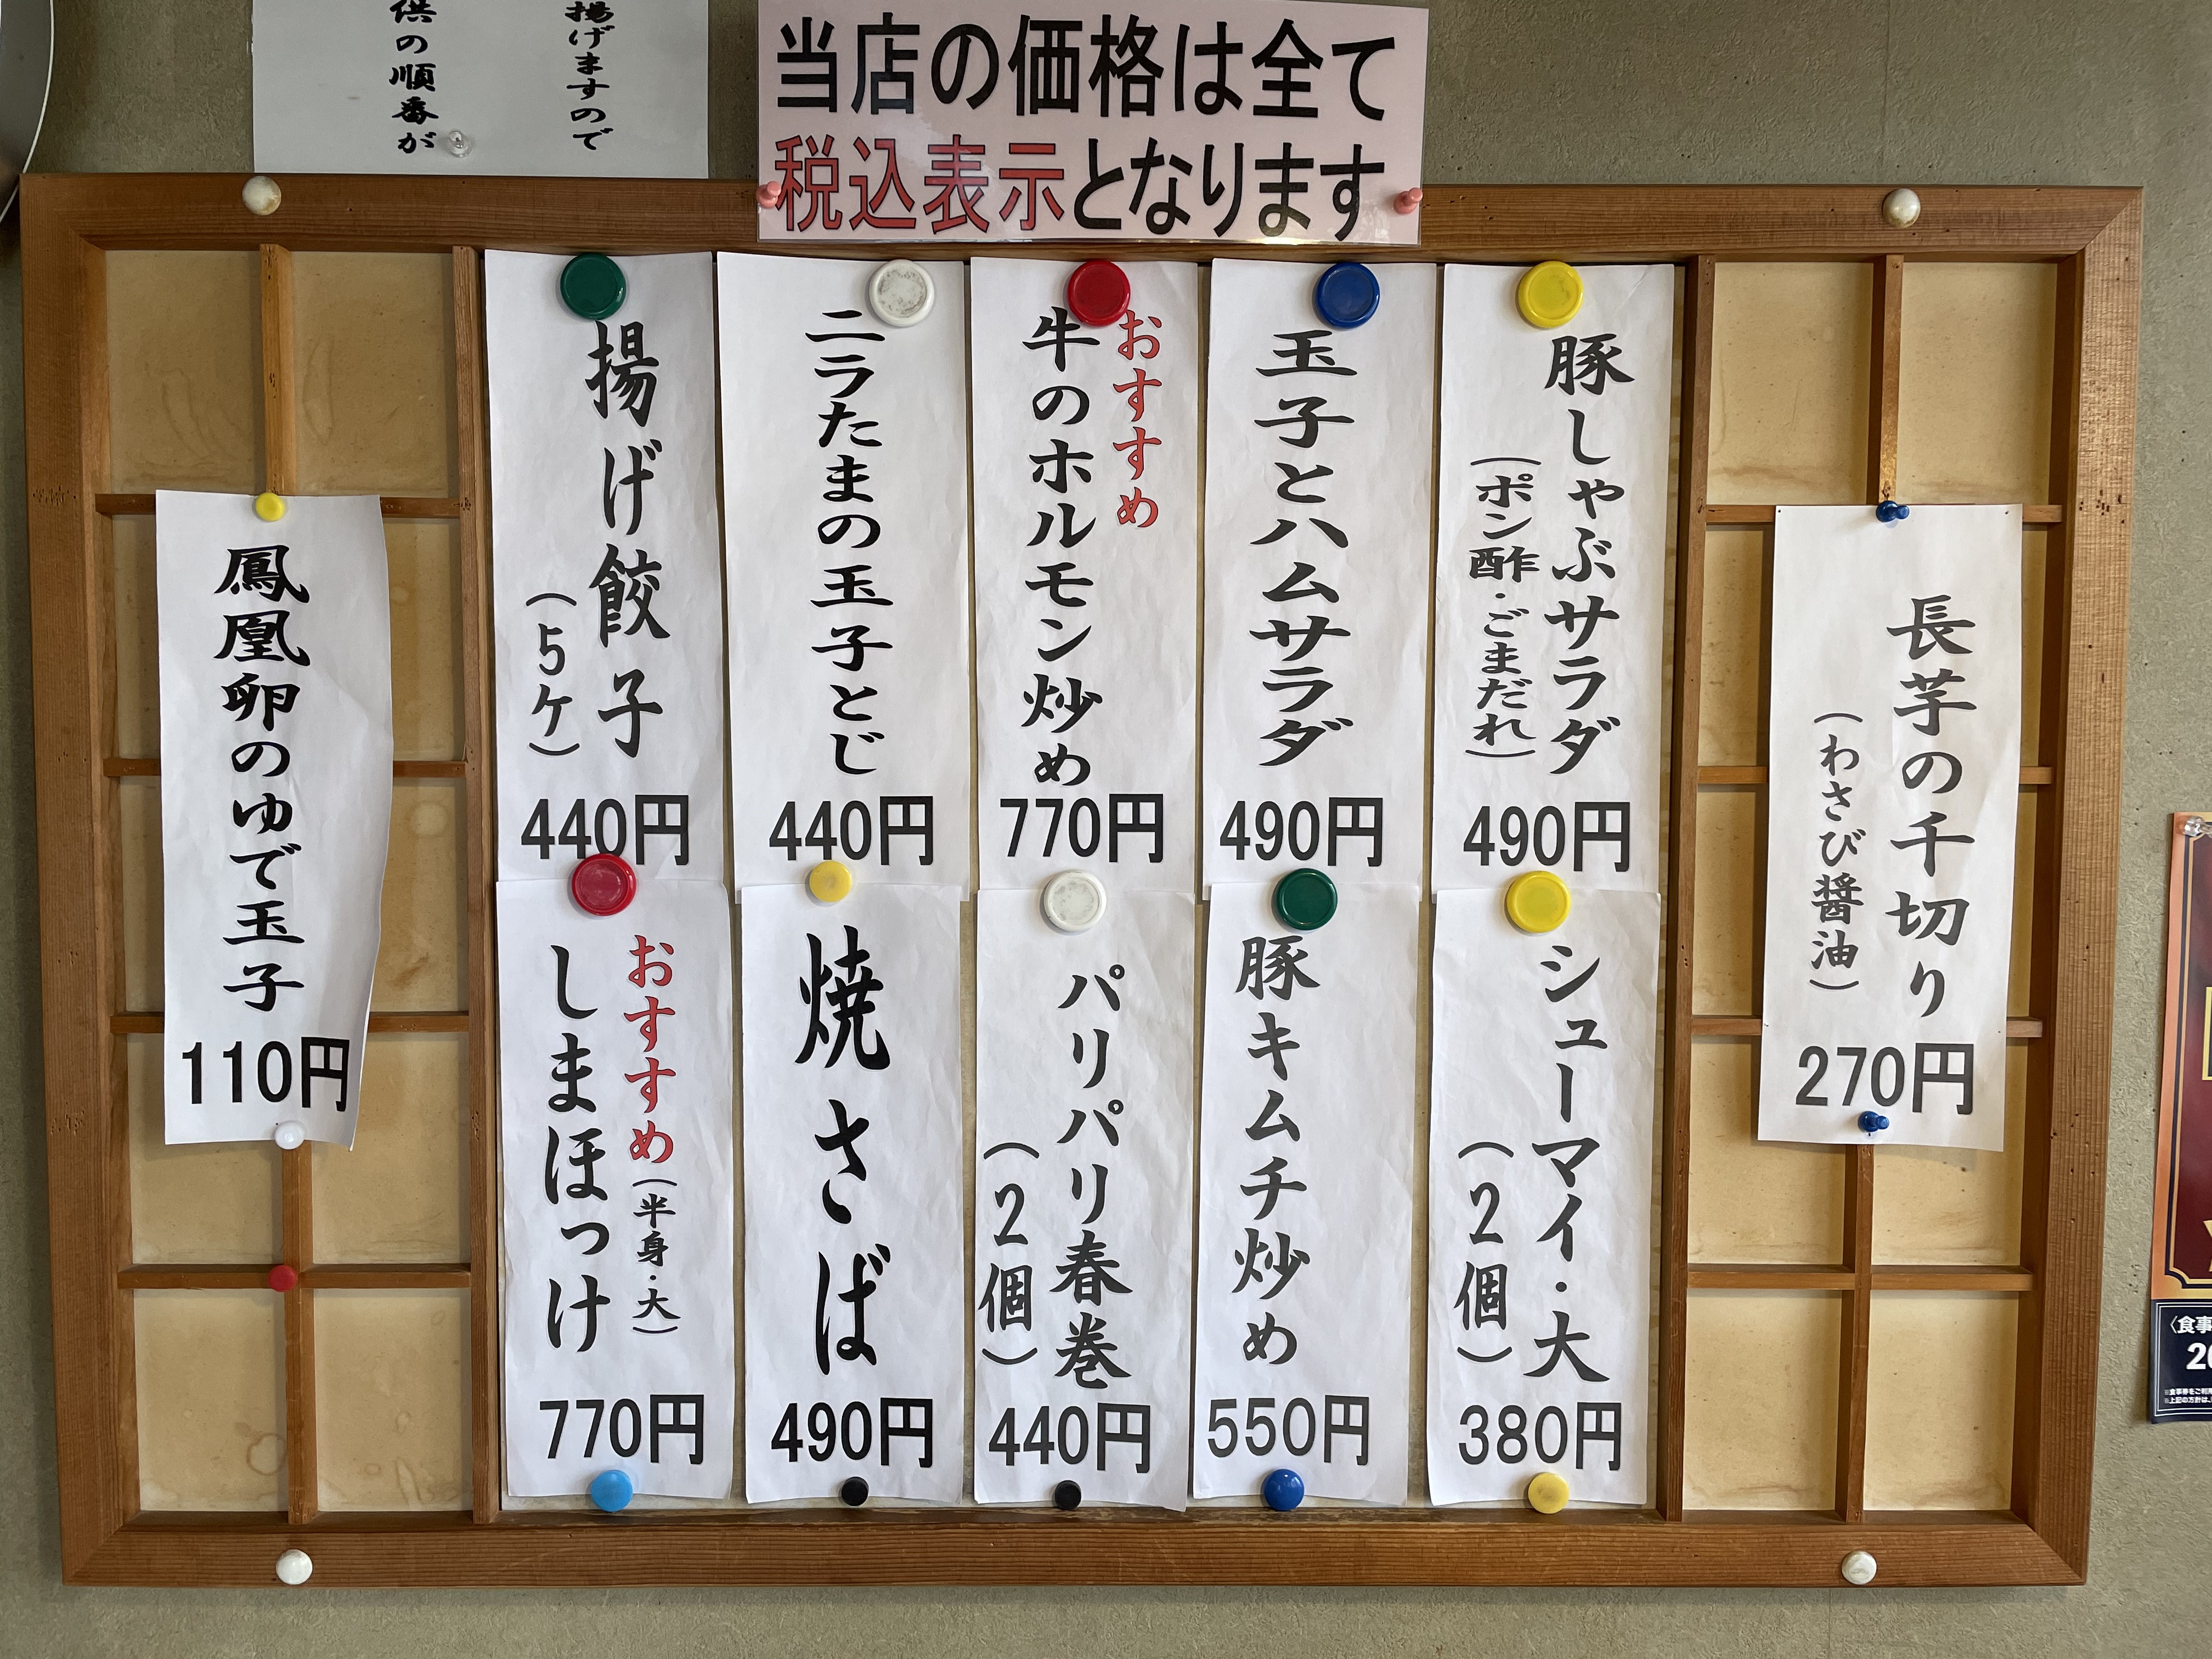 揚げますので
供の順番が
当店の価格は全て
税込表示となります
長芋の千切り
(わさび醤油)
270円
豚しゃぶサラダ
(ポン酢・ごまだれ)
490円
玉子とハムサラダ
490円
おすすめ
牛のホルモン炒め
770円
ニラたまの玉子とじ
440円
揚げ餃子
(5ケ)
440円
シューマイ・大
(2個)
380円
豚キムチ炒め
550円
パリパリ春巻
(2個)
440円
焼さば
490円
おすすめ(半身・大)
しまほっけ
770円
鳳凰卵のゆで玉子
110円
〈食事